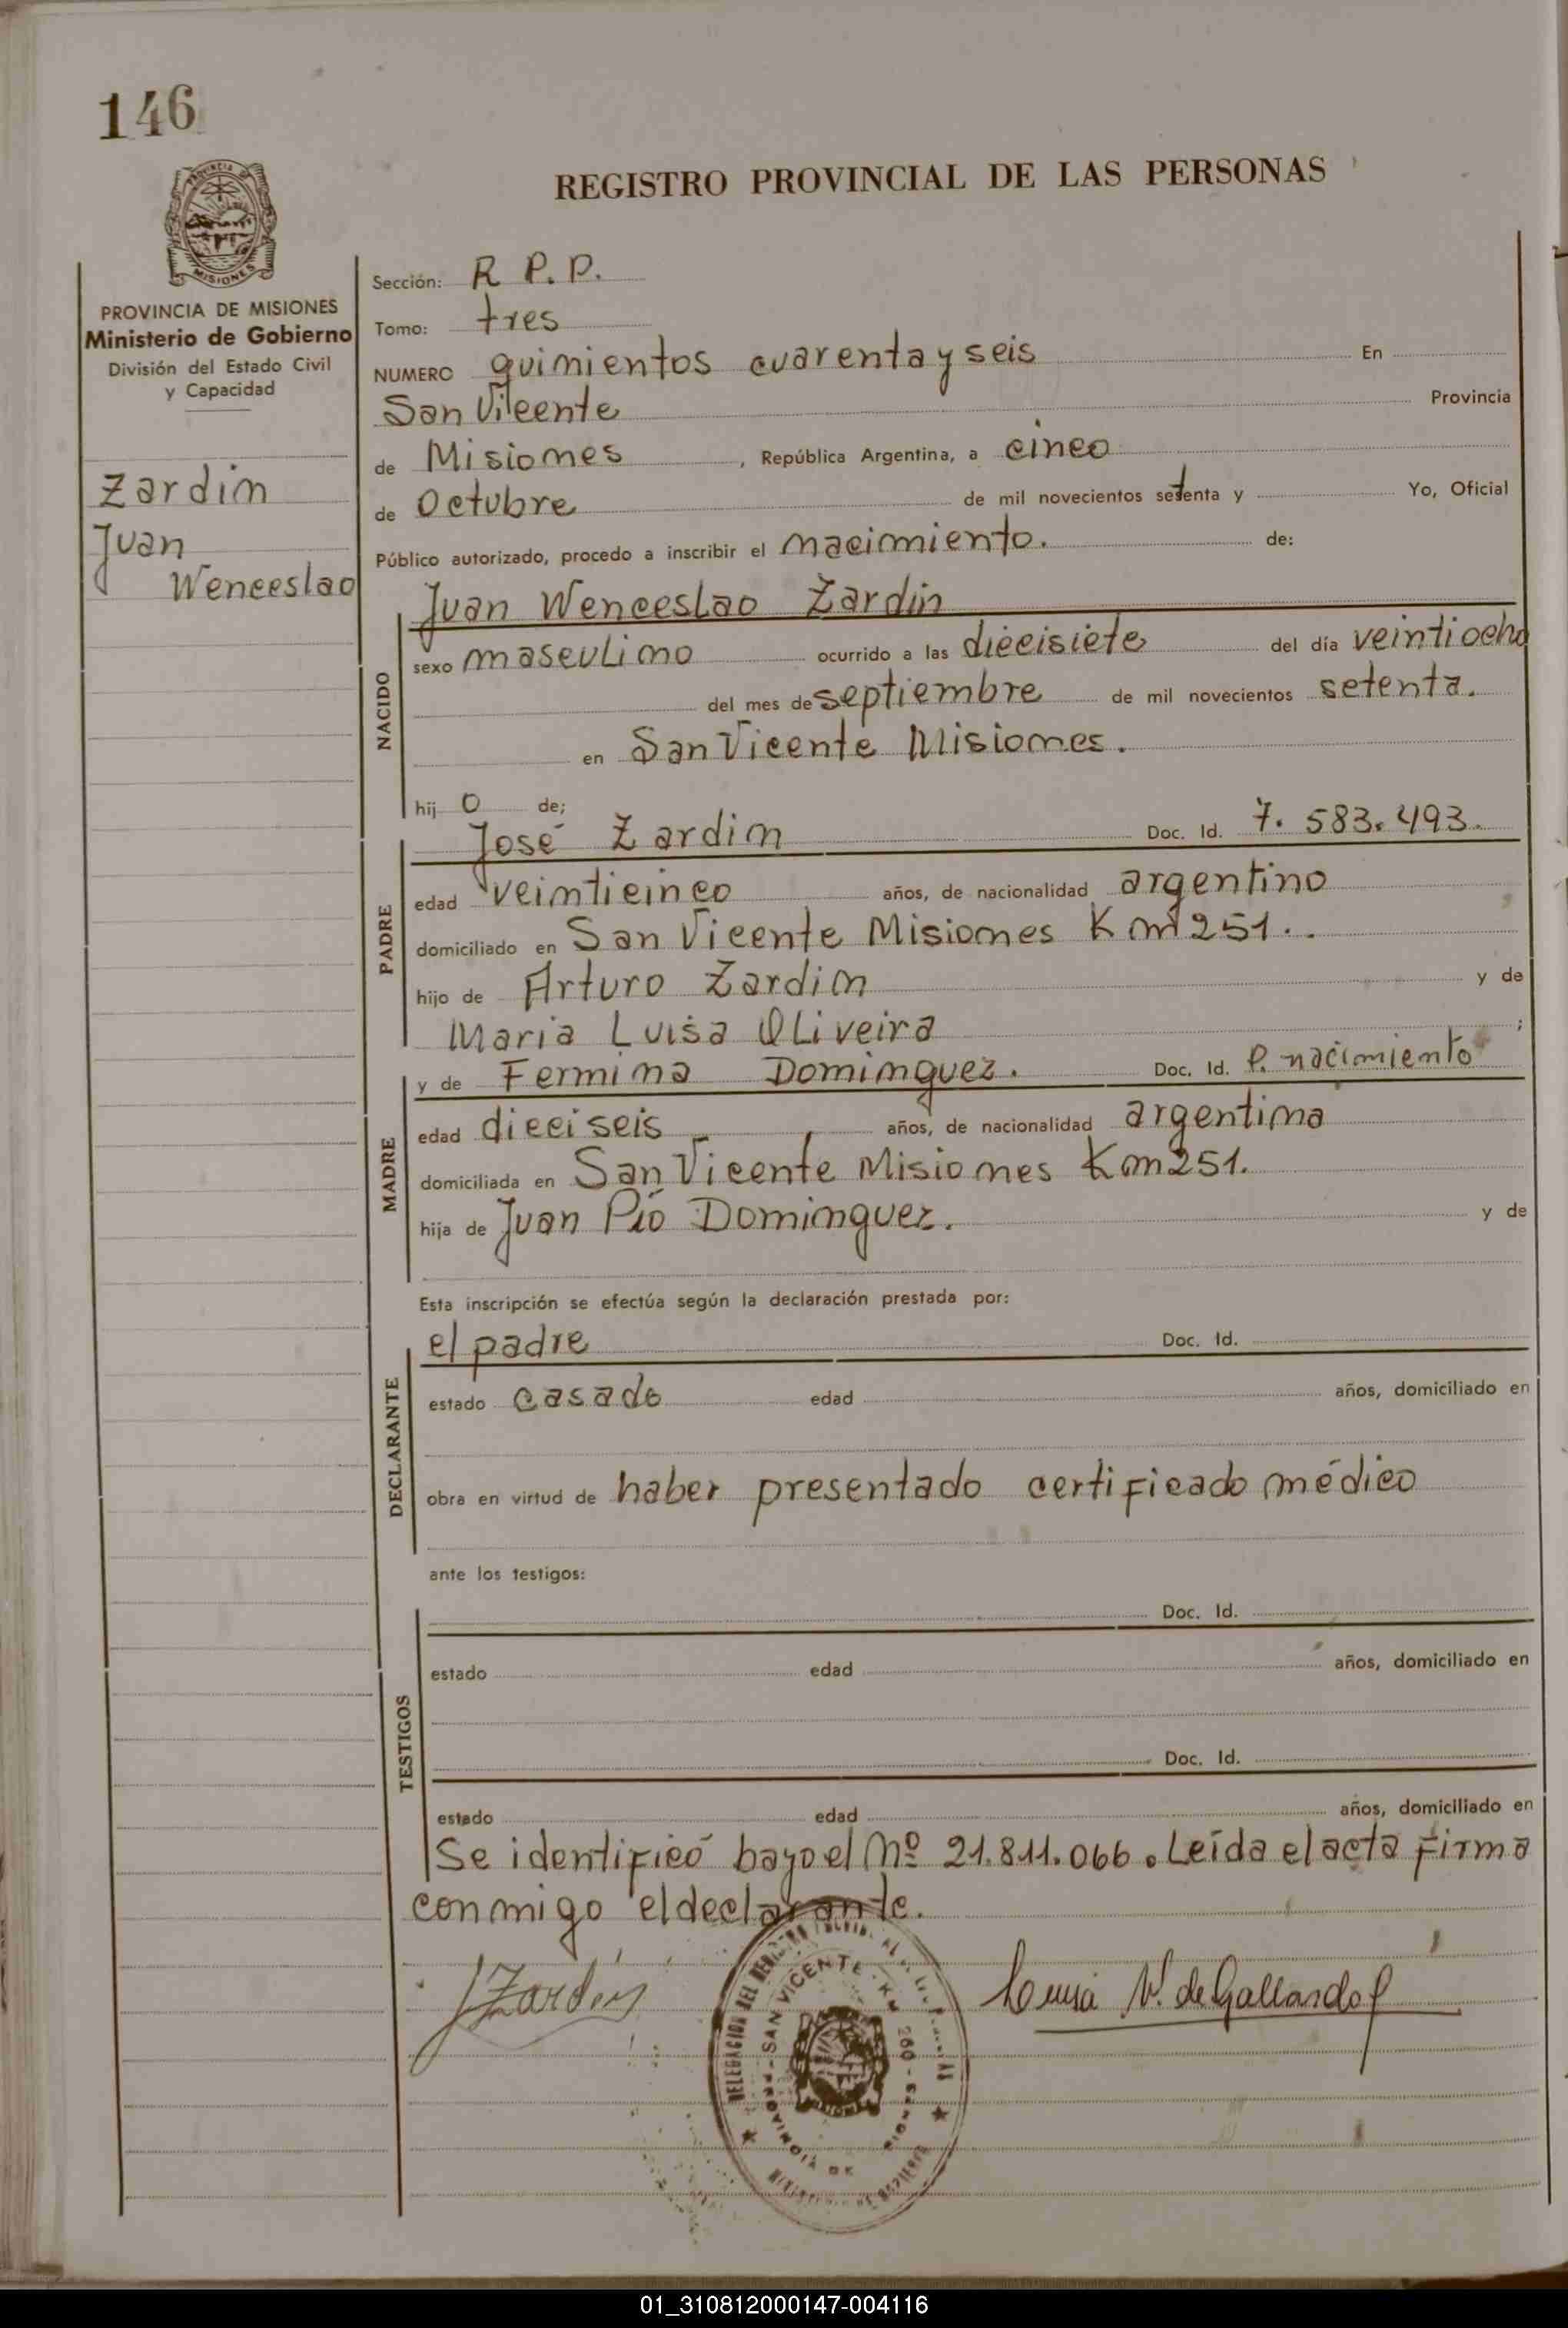 146
REGISTRO PROVINCIAL DE LAS PERSONAS
PROVINCIA
MISIONES
PROVINCIA DE MISIONES
Ministerio de Gobierno
División del Estado Civil
y Capacidad
Zardin
Juan
Wenceslao
Sección: R P.P.
Tomo: tres
NUMERO quinientos cuarenta y seis En
San Vicente Provincia
de Misiones, República Argentina, a cinco
de Octubre de mil novecientos setenta y Yo, Oficial
Público autorizado, procedo a inscribir el nacimiento. de:
Juan Wenceslao Zardin
NACIDO
sexo masculino ocurrido a las diecisiete del día veintiocho
del mes de septiembre de mil novecientos setenta.
en San Vicente Misiones.
hij o de;
José Zardin Doc. Id. 7. 583. 493.
PADRE
edad veinticinco años, de nacionalidad argentino
domiciliado en San Vicente Misiones Km 251..
hijo de Arturo Zardin y de
Maria Luisa Oliveira ;
y de Fermina Dominguez. Doc. Id. P. nacimiento
MADRE
edad dieciseis años, de nacionalidad argentina
domiciliada en San Vicente Misiones Km 251.
hija de Juan Pío Dominguez. y de
Esta inscripción se efectúa según la declaración prestada por:
el padre Doc. Id.
DECLARANTE
estado casado edad años, domiciliado en
obra en virtud de haber presentado certificado médico
ante los testigos:
Doc. Id.
TESTIGOS
estado edad años, domiciliado en
Doc. Id.
estado edad años, domiciliado en
Se identificó bajo el Nº 21.811.066. Leída el acta firma
conmigo el declarante.
JZardin
DELEGACION DEL
SAN VICENTE - KM 260
Luisa V. de Gallardo
01_310812000147-004116